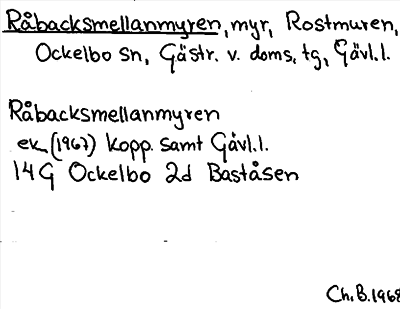 Råbacksmellanmyren, myr, Rostmuren,
Ockelbo sn, Gästr. v. doms. tg, Gävl.l.
Råbacksmellanmyren
ek (1967) Kopp. samt Gävl.l.
14G Ockelbo 2d Baståsen
Ch.B.1968